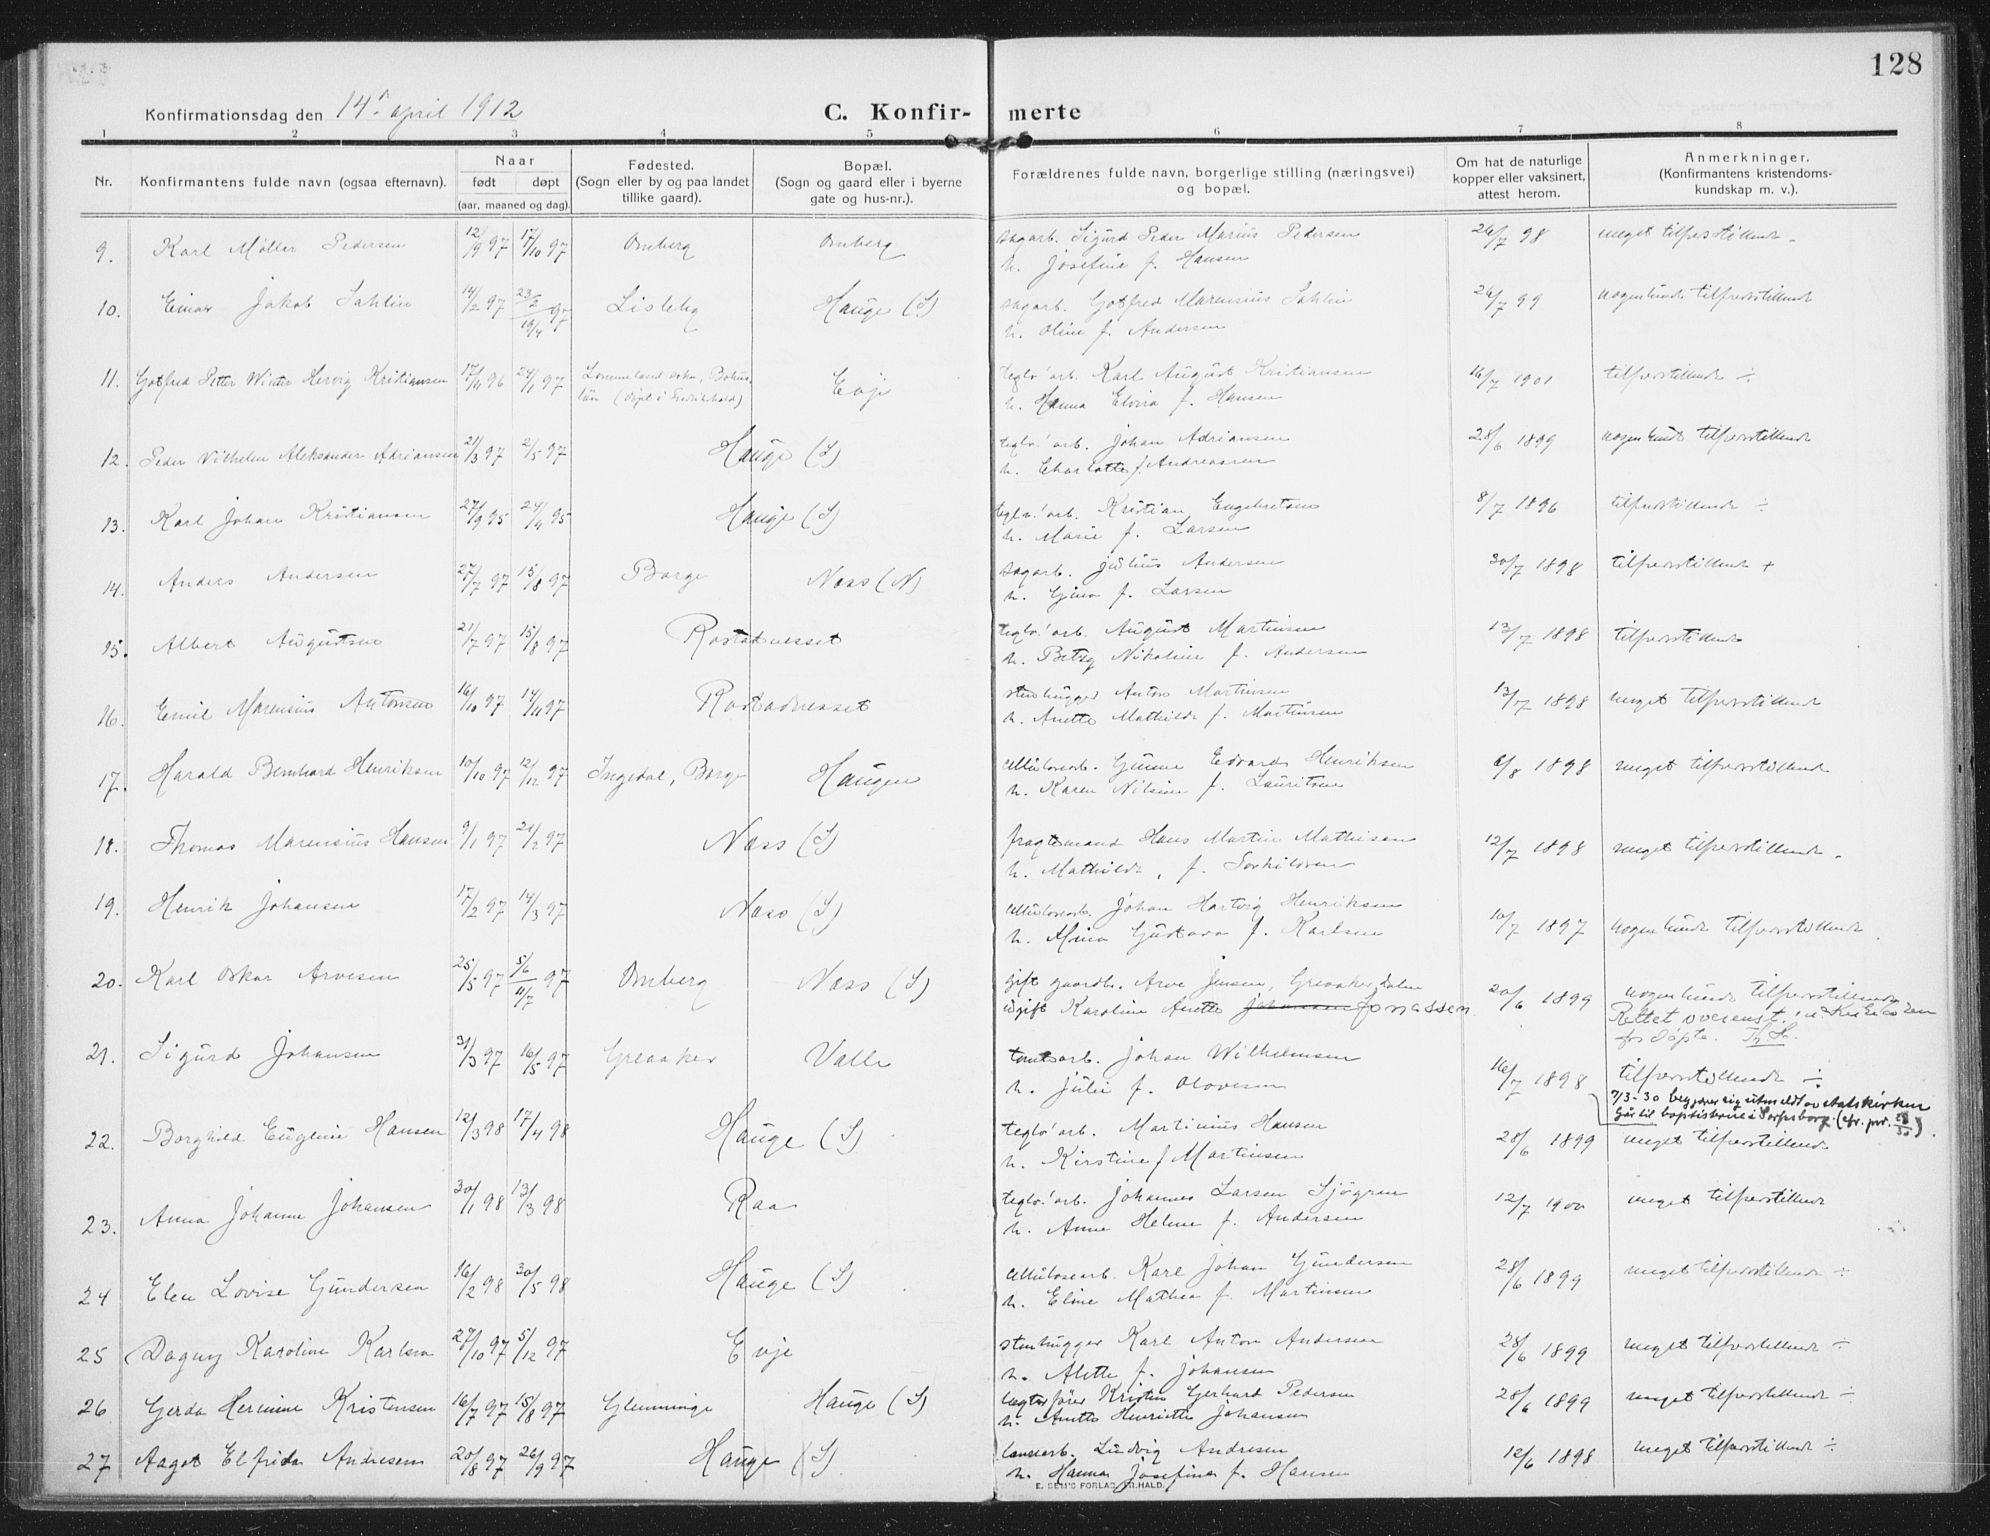 128
Konfirmationsdag den 14de april 1912
C. Konfir- merte
1 2 3 4 5 6 7 8
Nr.
Konfirmantens fulde navn (ogsaa efternavn).
Naar
født døpt
(aar, maaned og dag).
Fødested.
(Sogn eller by og paa landet
tillike gaard).
Bopæl.
(Sogn og gaard eller i byerne
gate og hus-nr.).
Forældrenes fulde navn, borgerlige stilling (næringsvei)
og bopæl.
Om hat de naturlige
kopper eller vaksinert,
attest herom.
Anmerkninger.
(Konfirmantens kristendoms-
kundskap m. v.).
9. Karl Møller Pedersen 12/9 97 17/10 97 Omberg Omberg sagarb. Sigurd Peder Marius Pedersen 26/7 98 meget tilfredsstillende
h. Josefine f. Hansen
10. Einar Jakob Sahlin 14/2 97 23/2 18/4 97 Lisleby Hauge (S) sagarb. Gotfred Marensius Sahlin 26/7 99 nogenlunde tilfredsstillende
h. Oline f. Andersen
11. Gotfred Petter Winter Hervig Kristiansen 17/11 96 24/1 97 Lommeland sokn, Bohus- Evje teglv.'arb. Karl August Kristiansen 16/7 1901 tilfredsstillende ÷
län (døpt i Fredrikshald) h. Hanna Elvira f. Hansen
12. Peder Vilhelm Aleksander Adriansen 21/3 97 2/5 97 Hauge (S) teglv.'arb. Johan Adriansen 28/6 1899 nogenlunde tilfredsstillende
h. Charlotte f. Andreassen
13. Karl Johan Kristiansen 27/9 95 24/4 95 Hauge (S) teglv.'arb. Kristian Engebretsen 8/7 1896 tilfredsstillende ÷
h. Marie f. Larsen
14. Anders Andersen 27/7 97 15/8 97 Borge Næss (N) sagarb. Julius Andersen 30/7 1898 tilfredsstillende +
h. Gina f. Larsen
15. Albert Augustsen 21/7 97 15/8 97 Rostadnesset teglv.'arb. August Martinsen 13/7 1898 tilfredsstillende
h. Betsy Nikoline f. Andersen
16. Emil Marensius Antonsen 16/10 97 14/11 97 Rostadnesset stenhugger Anton Martinsen 13/7 1898 meget tilfredsstillende
h. Anette Mathilde f. Martinsen
17. Harald Bernhard Henriksen 10/10 97 12/12 97 Ingedal, Borge Haugen cellulosearb. Gunne Edvard Henriksen 6/8 1898 meget tilfredsstillende
h. Karen Nilsine f. Lauritsen
18. Thomas Marensius Hansen 9/1 97 21/2 97 Næss (S) fragtemand Hans Martin Mathisen 12/7 1898 meget tilfredsstillende
h. Mathilde, f. Torkildsen
19. Henrik Johansen 17/2 97 14/3 97 Næss (S) cellulosearb. Johan Hartvig Henriksen 10/7 1897 nogenlunde tilfredsstillende
h. Mina Gustava f. Karlsen
20. Karl Oskar Arvesen 25/5 97 5/6 11/7 97 Omberg Næss (S) gift gaardbr. Arve Jensen, Greaaker dalen 20/6 1899 nogenlunde tilfredsstillende
ugift Karoline Anette Johansen Jonassen Rettet overenst. m. Kirkeboken
for døpte.
21. Sigurd Johansen 31/3 97 16/5 97 Greaaker Valle tomtearb. Johan Wilhelmsen 16/7 1898 tilfredsstillende ÷
h. Julie f. Olavesen 7/3-30 begjærer sig utmeldt av statskirken
Går til baptisterne i Sarpsborg. (cfr. pr. 28/30)
22. Borghild Eugenie Hansen 12/3 98 17/4 98 Hauge (S) teglv.'arb. Martinius Hansen 28/6 1899 meget tilfredsstillende
h. Kirstine f Martinsen
23. Anna Johanne Johansen 30/1 98 13/3 98 Raa teglv.'arb. Johannes Larsen Sjögren 12/7 1900 meget tilfredsstillende
h. Anne Helene f. Andersen
24 Elen Lovise Gundersen 16/2 98 30/5 98 Hauge (S) cellulosearb. Karl Johan Gundersen 28/6 1899 meget tilfredsstillende ÷
h. Eline Mathea f. Martinsen
25 Dagny Karoline Karlsen 27/10 97 5/12 97 Evje stenhugger Karl Anton Andersen 28/6 1899 meget tilfredsstillende ÷
h. Alette f. Johansen
26 Gerda Hermine Kristensen 16/7 97 15/8 97 Glemminge Hauge (S) lægterfører Kristen Gerhard Pedersen 28/6 1899 meget tilfredsstillende ÷
h. Anette Henriette Johansen
27 Aagot Elfrida Andresen 20/8 97 26/9 97 Hauge (S) lensearb. Ludvig Andresen 12/6 1898 meget tilfredsstillende ÷
h. Hanna Josefine f. Hansen
E. SEM'S FORLAG, FR.HALD.